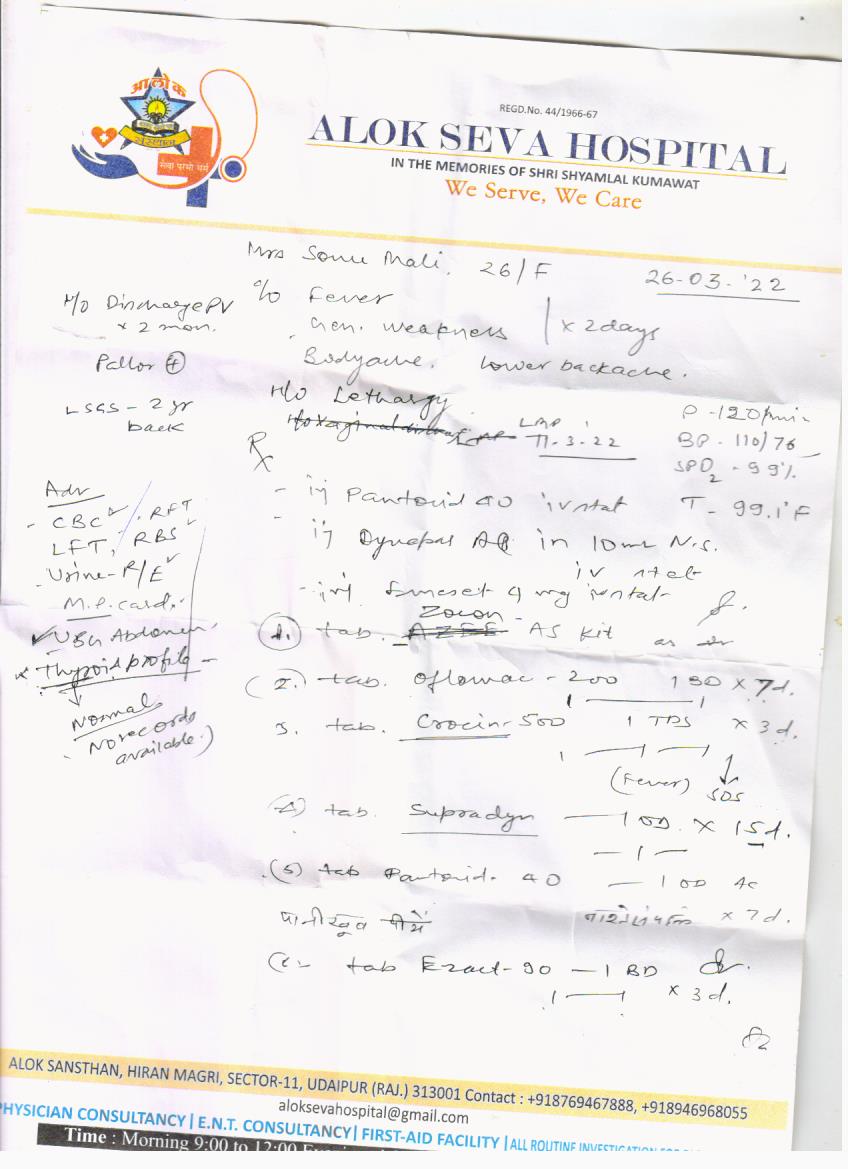 आलोक
संस्थान
सेवा परमो धर्म
REGD.No. 44/1966-67
ALOK SEVA HOSPITAL
IN THE MEMORIES OF SHRI SHYAMLAL KUMAWAT
We Serve, We Care
Mrs Sonu Mali. 26/F
26-03-'22
H/O Discharge PV
x 2 mon.
Pallor (+)
LSCS - 2 yr
back
c/o Fever
Gen. weakness x 2 days
Bodyache. Lower backache.
H/O Lethargy
LMP
11-3-22
P - 120/min
BP - 110/76
SPO2 - 99%
T - 99.1°F
Rx
Adv
- CBC, RFT
LFT, RBS
- Urine - R/E
M.P. card.
USG Abdomen
Thyroid profile -
Normal
(No records
available.)
- inj Pantorid 40 iv stat
- inj Dynapar AQ in 10ml N.S.
iv stat
- inj Emeset 4 mg iv stat
1. tab. Zocon - AS Kit
(2.) tab. Oflomac - 200 1 BD x 7d.
1 1
3. tab. Crocin - 500 1 TDS x 3d.
1 1 1
(Fever) SOS
(4) tab. Supradyn 1 OD. x 15d.
— 1 —
(5) tab Pantorid. 40 — 1 OD AC
x 7d.
पानी खूब पीयें
tab Ezact - 90 — 1 BD
1 — 1 x 3d.
ALOK SANSTHAN, HIRAN MAGRI, SECTOR-11, UDAIPUR (RAJ.) 313001 Contact : +918769467888, +918946968055
aloksevahospital@gmail.com
PHYSICIAN CONSULTANCY | E.N.T. CONSULTANCY | FIRST-AID FACILITY | ALL ROUTINE INVESTIGATION
Time : Morning 9:00 to 12:00